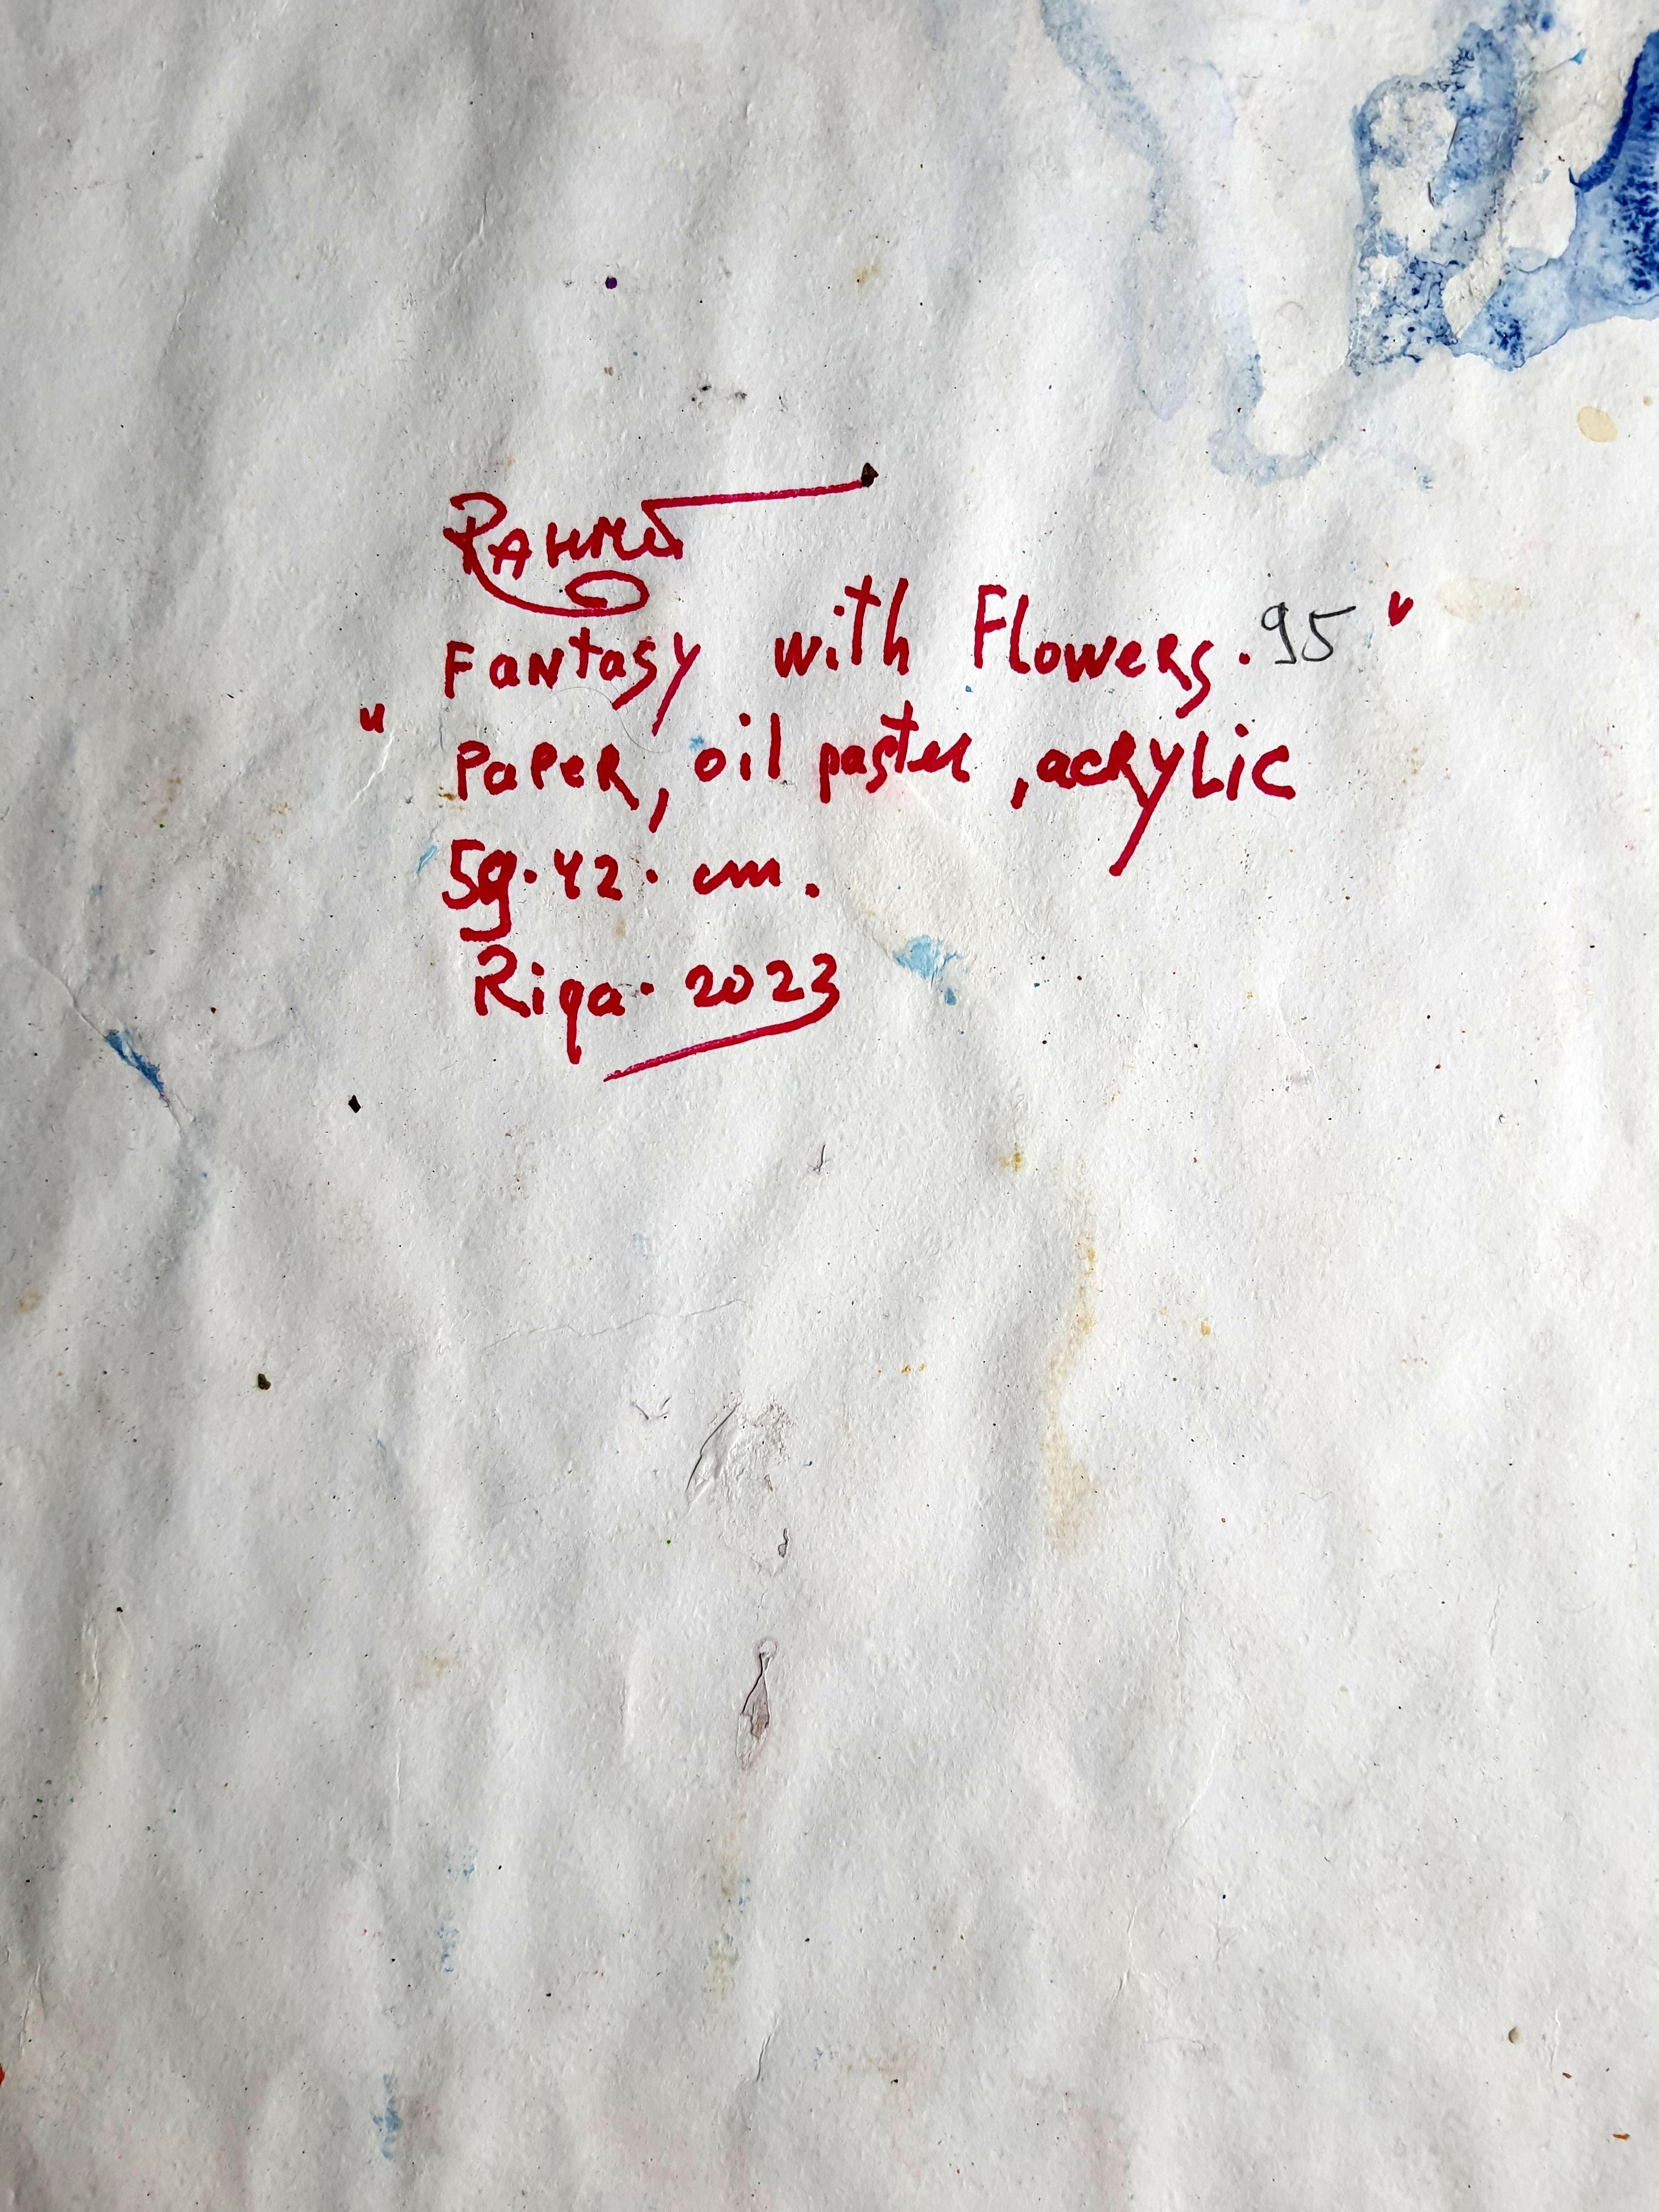 Fantasy with Flowers. 95 "
" Paper, oil pastel, acrylic
59·42· cm.
Riga· 2023